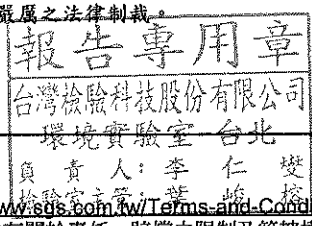 嚴厲之法律制裁。
報告專用章
台灣檢驗科技股份有限公司
環境實驗室-台北
負責人：李仁
檢驗室主管：葉峻
www.sgs.com.tw/Terms-and-Condi